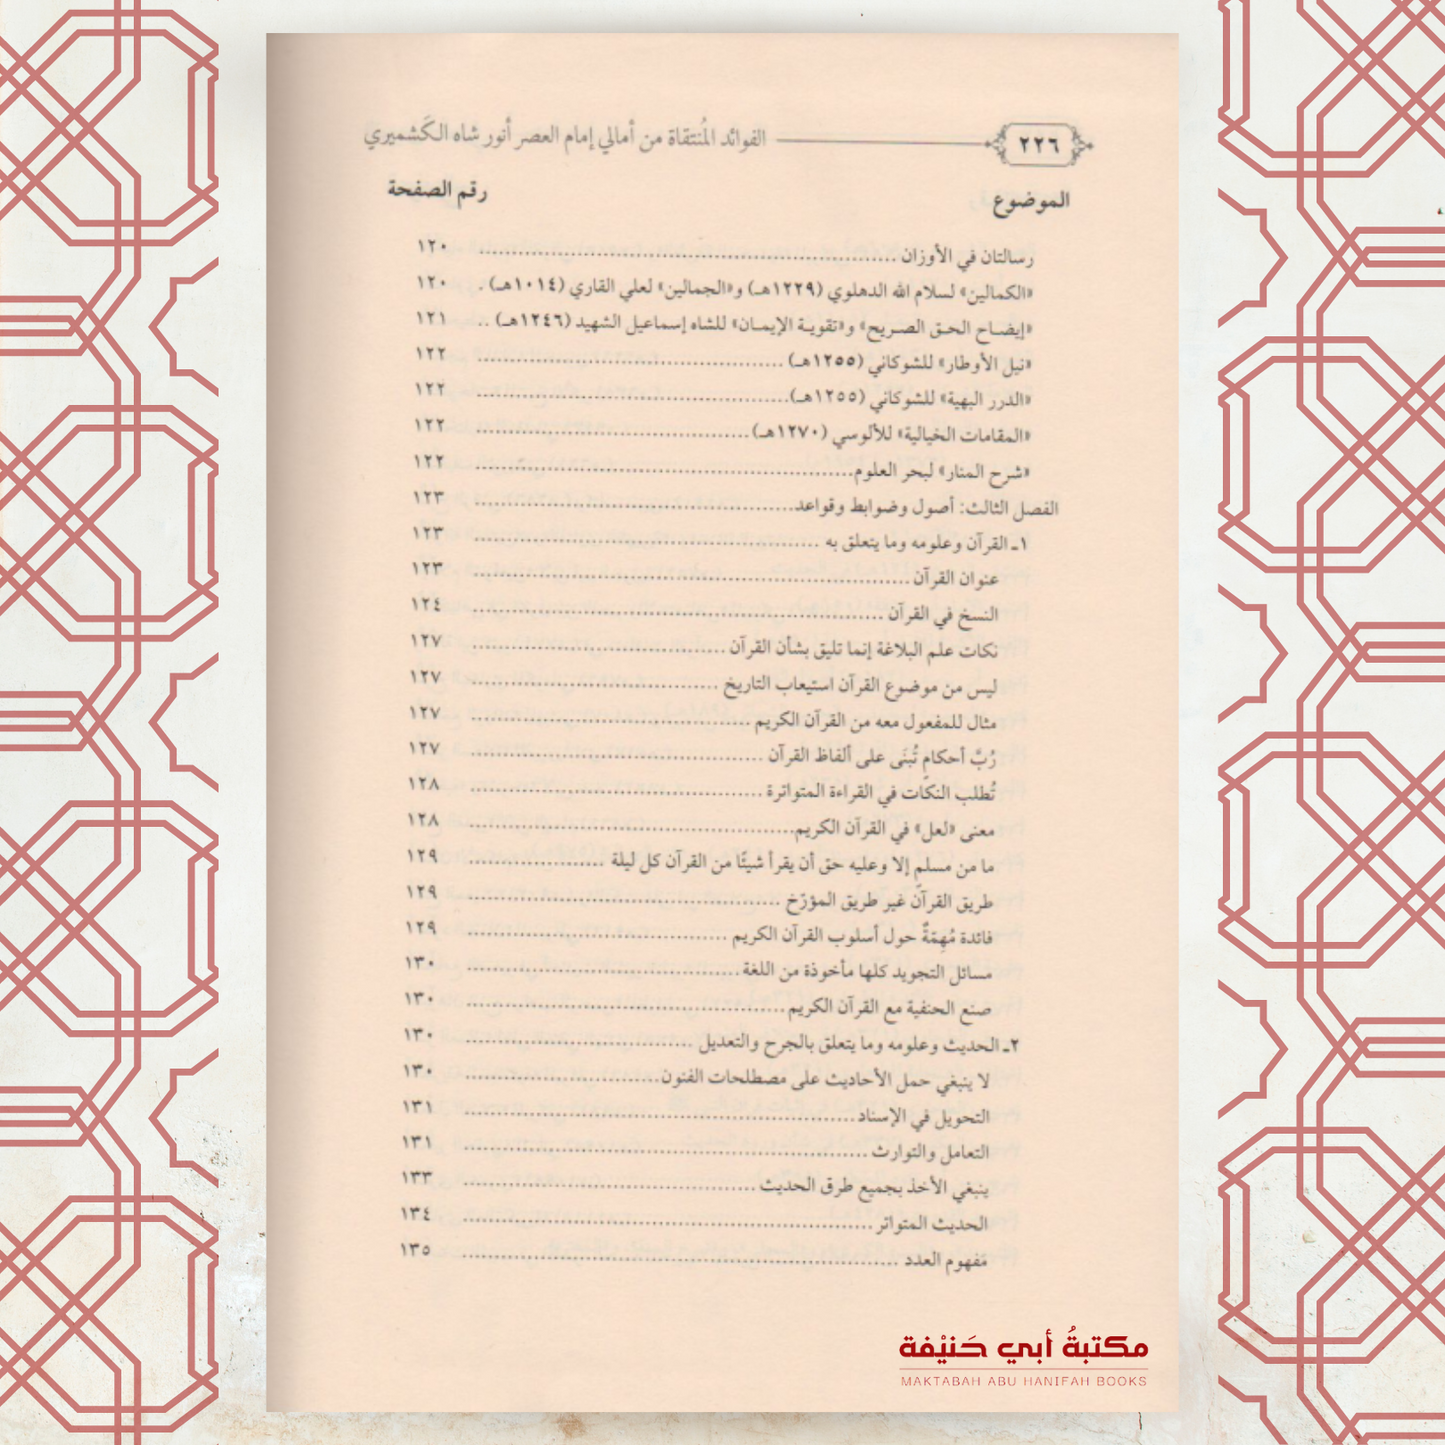 ٢٢٦ الفوائد المُنتقاة من أمالي إمام العصر أنور شاه الكَشميري
الموضوع رقم الصفحة
رسالتان في الأوزان ١٢٠
«الكمالين» لسلام الله الدهلوي (١٢٢٩هـ) و«الجمالين» لعلي القاري (١٠١٤هـ) ١٢٠
«إيضاح الحق الصريح» و«تقوية الإيمان» للشاه إسماعيل الشهيد (١٢٤٦هـ) ١٢١
«نيل الأوطار» للشوكاني (١٢٥٥هـ) ١٢٢
«الدرر البهية» للشوكاني (١٢٥٥هـ) ١٢٢
«المقامات الخيالية» للألوسي (١٢٧٠هـ) ١٢٢
«شرح المنار» لبحر العلوم ١٢٢
الفصل الثالث: أصول وضوابط وقواعد ١٢٣
١ـ القرآن وعلومه وما يتعلق به ١٢٣
عنوان القرآن ١٢٣
النسخ في القرآن ١٢٤
نكات علم البلاغة إنما تليق بشأن القرآن ١٢٧
ليس من موضوع القرآن استيعاب التاريخ ١٢٧
مثال للمفعول معه من القرآن الكريم ١٢٧
رُبَّ أحكامٍ تُبنَى على ألفاظ القرآن ١٢٧
تُطلب النكات في القراءة المتواترة ١٢٨
معنى «لعل» في القرآن الكريم ١٢٨
ما من مسلمٍ إلا وعليه حق أن يقرأ شيئًا من القرآن كل ليلة ١٢٩
طريق القرآن غير طريق المؤرّخ ١٢٩
فائدة مُهِمّةٌ حول أسلوب القرآن الكريم ١٢٩
مسائل التجويد كلها مأخوذة من اللغة ١٣٠
صنع الحنفية مع القرآن الكريم ١٣٠
٢ـ الحديث وعلومه وما يتعلق بالجرح والتعديل ١٣٠
لا ينبغي حمل الأحاديث على مصطلحات الفنون ١٣٠
التحويل في الإسناد ١٣١
التعامل والتوارث ١٣١
ينبغي الأخذ بجميع طرق الحديث ١٣٣
الحديث المتواتر ١٣٤
مفهوم العدد ١٣٥
مكتبةُ أبي حَنيْفة
MAKTABAH ABU HANIFAH BOOKS